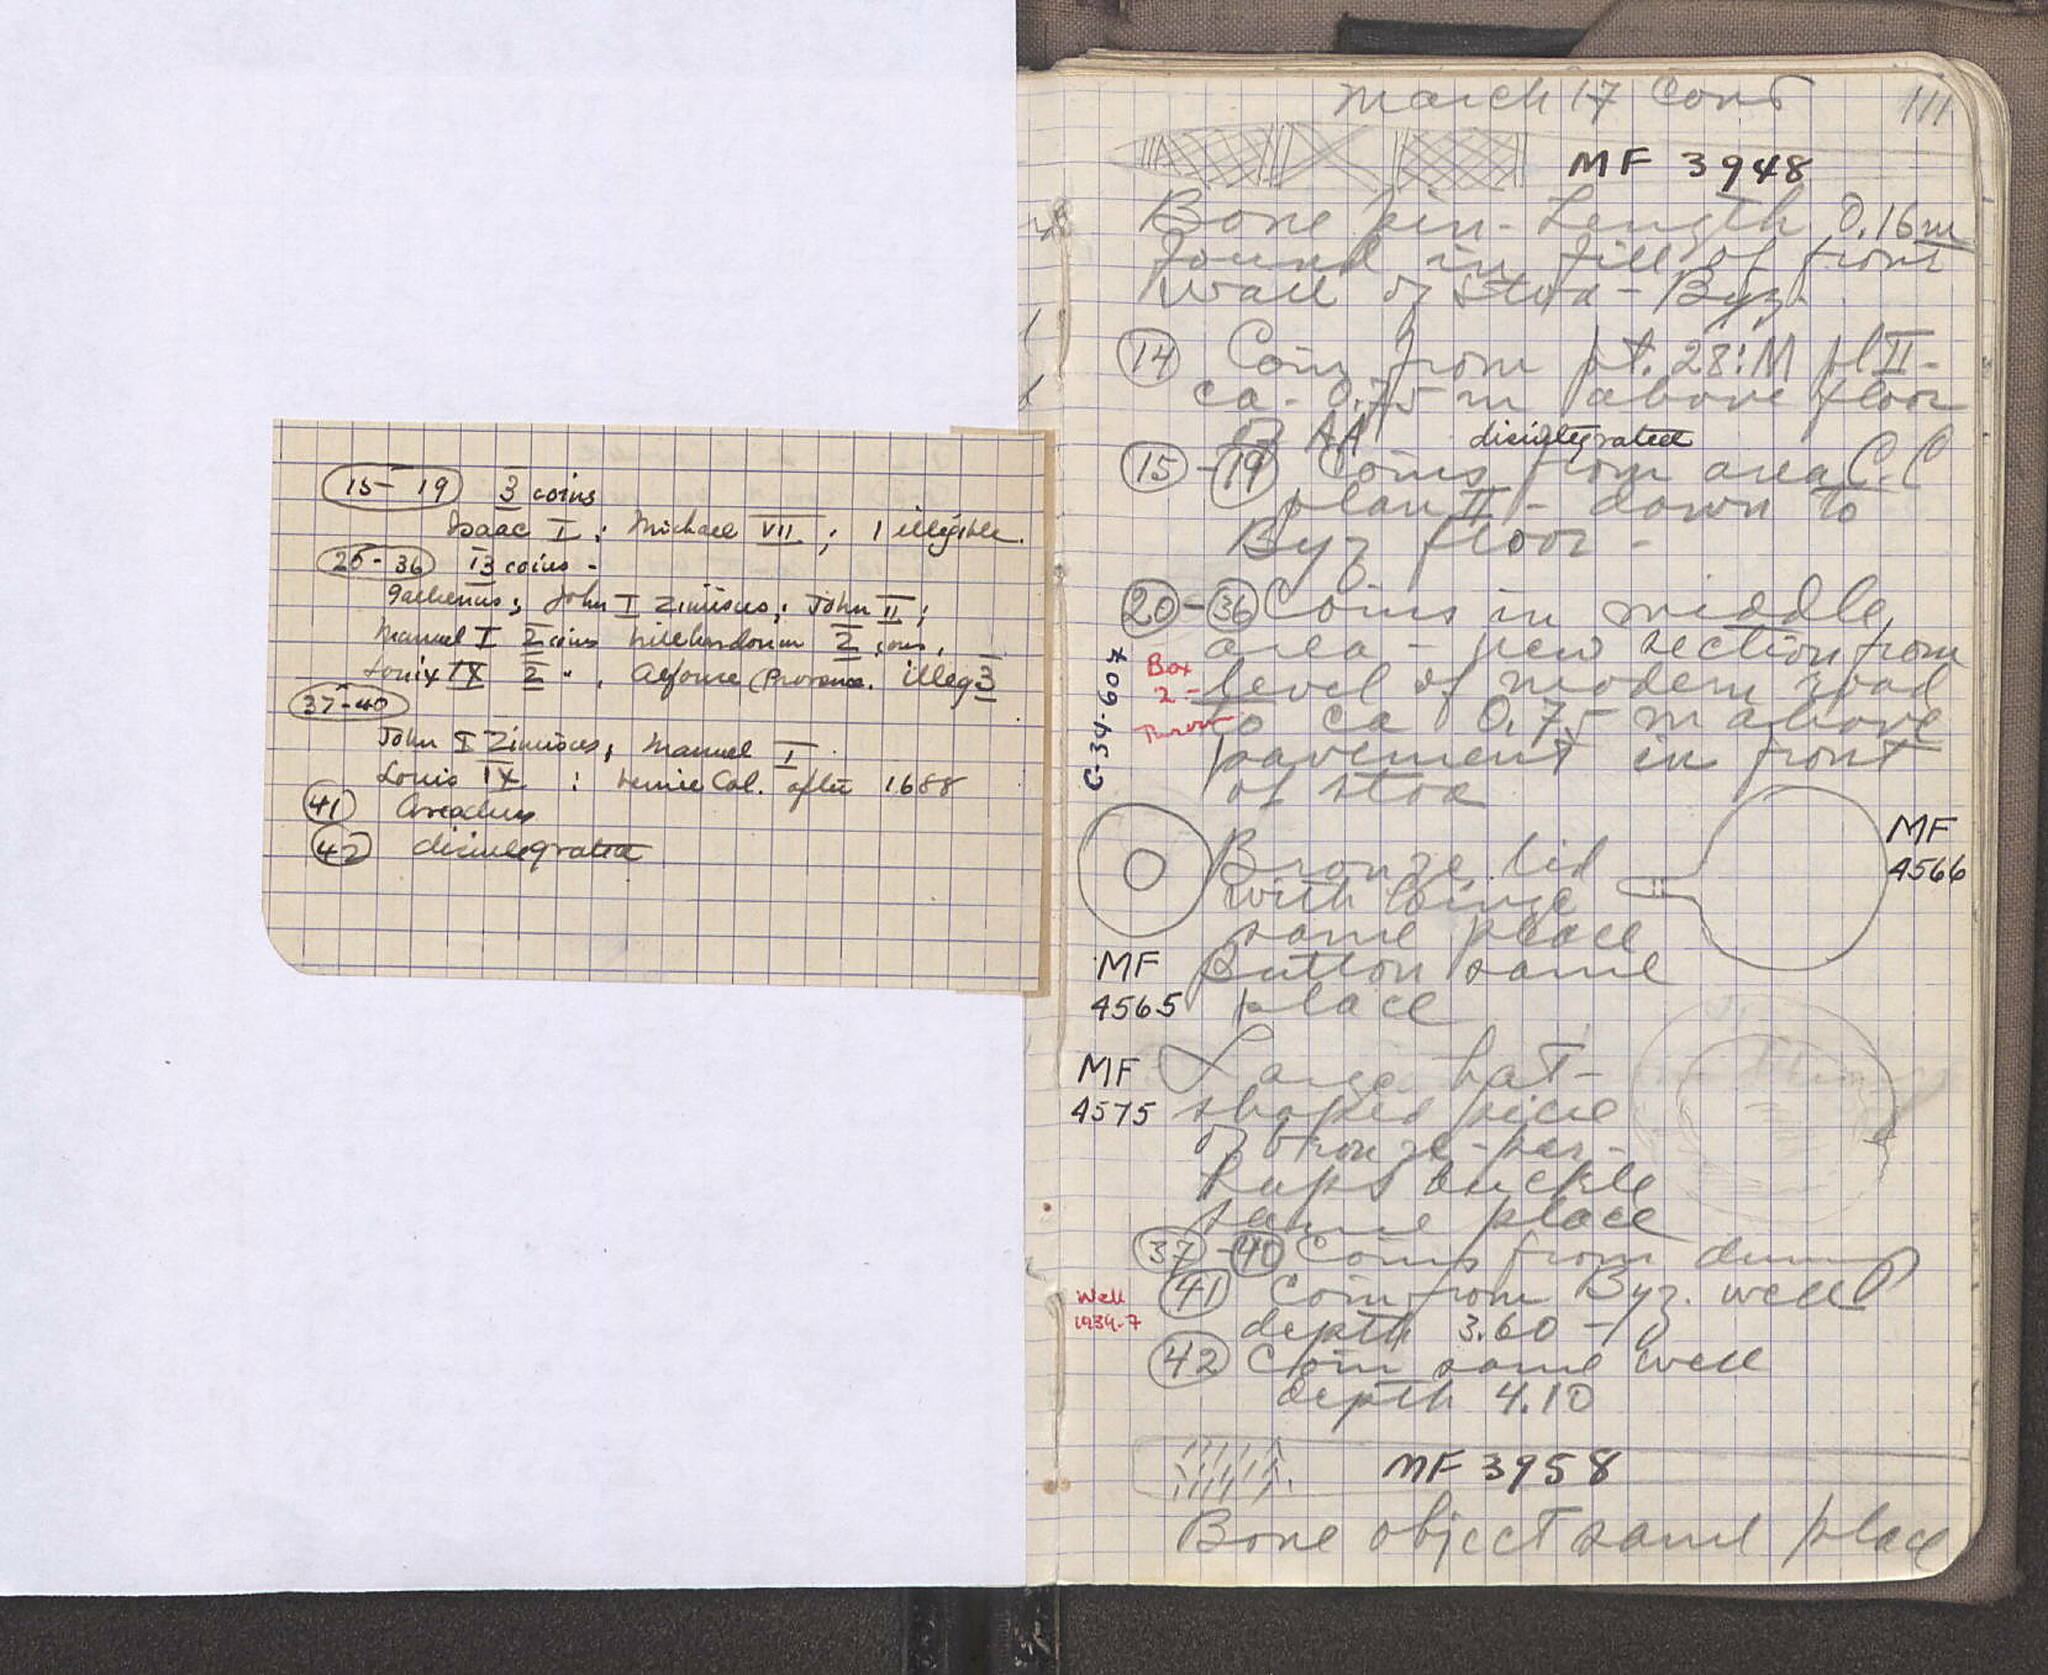 15-19 3 coins
Isaac I; Michael VII; 1 illegible.
20-36 13 coins -
Gallienus; John I Zimisces; John II;
Manuel I 2 coins Villehardouin 2 coins,
Louis IX 2 " , Alfonse (Provence. illeg 3
37-40
John I Zimisces; Manuel I
Louis IX : Venice Col. after 1688
41 Arcadius
42 disintegrated
March 17 Cont 111
MF 3948
Bone pin - Length 0.16m
found in fill of front
wall of stoa - Byz.
14 Coin from pt. 28:M pl II -
ca. 0.75 m above floor
of AA disintegrated
15-19 Coins from area C.C
plan II - down to
Byz floor -
20-36 Coins in middle
area - new section from
level of modern road
to ca 0.75 m above
pavement in front
of stoa
C-34-607
Box
2 -
Bronze lid
with hinge
same place
MF
4566
Button same
place
MF
4565
MF
4575
Large hat-
shaped piece
of bronze - per-
haps buckle
same place
37-40 Coins from dump
41 Coin from Byz. well
depth 3.60 -
Well
1934-7
42 Coin same well
depth 4.10
MF 3958
Bone object same place